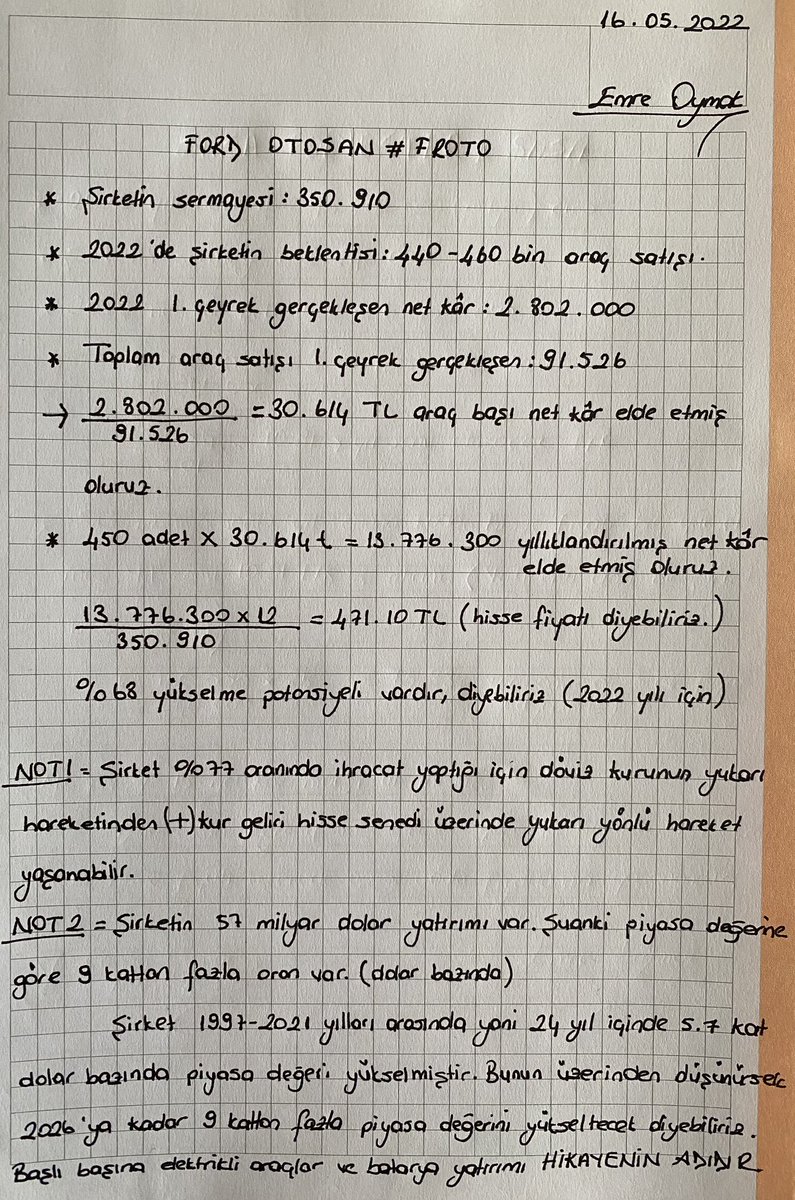 16.05.2022
Emre Oymak
FORD OTOSAN # FROTO
* Şirketin sermayesi : 350.910
* 2022'de şirketin beklentisi : 440-460 bin araç satışı.
* 2022 1. çeyrek gerçekleşen net kâr : 2.802.000
* Toplam araç satışı 1. çeyrek gerçekleşen : 91.526
→ 2.802.000 = 30.614 TL araç başı net kâr elde etmiş
91.526
oluruz.
* 450 adet X 30.614 ₺ = 13.776.300 yıllıklandırılmış net kâr
elde etmiş oluruz.
13.776.300 x 12 = 471.10 TL (hisse fiyatı diyebiliriz.)
350.910
%68 yükselme potansiyeli vardır, diyebiliriz (2022 yılı için)
NOT1 = Şirket %77 oranında ihracat yaptığı için döviz kurunun yukarı
hareketinden (+) kur geliri hisse senedi üzerinde yukarı yönlü hareket
yaşanabilir.
NOT2 = Şirketin 57 milyar dolar yatırımı var. Şuanki piyasa değerine
göre 9 kattan fazla oran var. (dolar bazında)
Şirket 1997-2021 yılları arasında yani 24 yıl içinde 5.7 kat
dolar bazında piyasa değeri yükselmiştir. Bunun üzerinden düşünürsek
2026'ya kadar 9 kattan fazla piyasa değerini yükseltecek diyebiliriz.
Başlı başına elektrikli araçlar ve batarya yatırımı HİKAYENİN ADIDIR